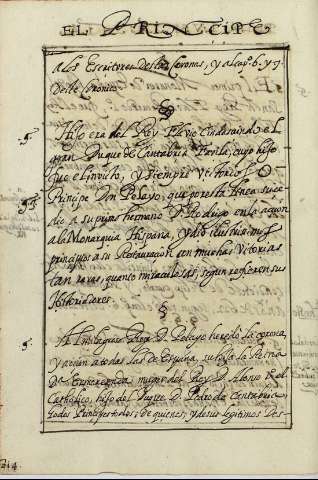 EL PRINCIPE
a los Escritores destas Coronas, y al cap. 6. y 7.
de este Coronico.
§
§. Hijo era del Rey Flavio Cindasuindo el
gran Duque de Cantabria Favila, cuyo hijo
fue el invicto, y siempre Victorioso
Principe Don Pelayo, que por esta linea suce-
dio a su primo hermano D. Rodrigo en la accion
a la Monarquia Hispana, y dio ilustrissimos
principios a su Restauracion con muchas Vitorias
tan raras, quanto milaculosas, segun refieren sus
Historiadores.
§
§. Al milagroso Rey D. Pelayo heredò la corona,
y a todas las de España, su hija la Reina
D. Ermenesenda muger del Rey D. Alonso I. el
Catholico, hijo del Duque D. Pedro de Cantabria
Godos Principes todos; de quienes, y de sus legitimos Des-
214.